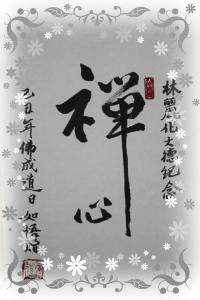 林麗化大德紀念
禪心
己丑年佛成道日 如悟